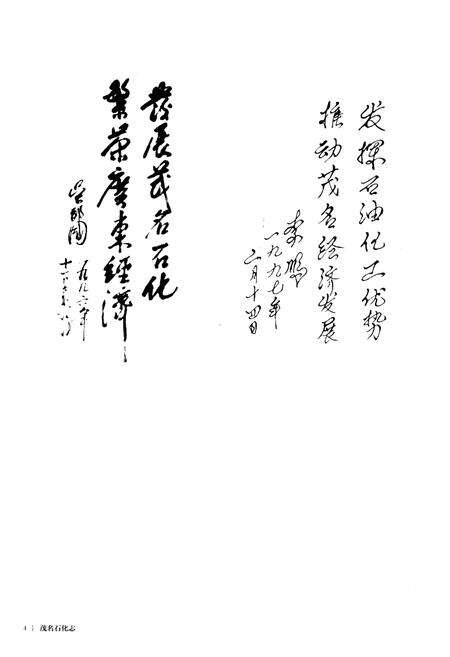 发挥石油化工优势
推动茂名经济发展
李鹏
一九九七年
二月十四日
發展茂名石化
繁荣廣東經濟
4
茂名石化志